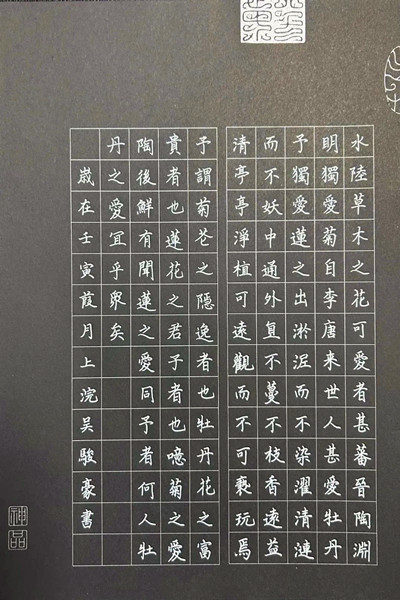 水陸草木之花可愛者甚蕃晉陶淵
明獨愛菊自李唐來世人甚愛牡丹
予獨愛蓮之出淤泥而不染濯清漣
而不妖中通外直不蔓不枝香遠益
清亭亭淨植可遠觀而不可褻玩焉
予謂菊花之隱逸者也牡丹花之富
貴者也蓮花之君子者也噫菊之愛
陶後鮮有聞蓮之愛同予者何人牡
丹之愛冝乎衆矣
嵗在壬寅葭月上浣吴駿豪書
神品